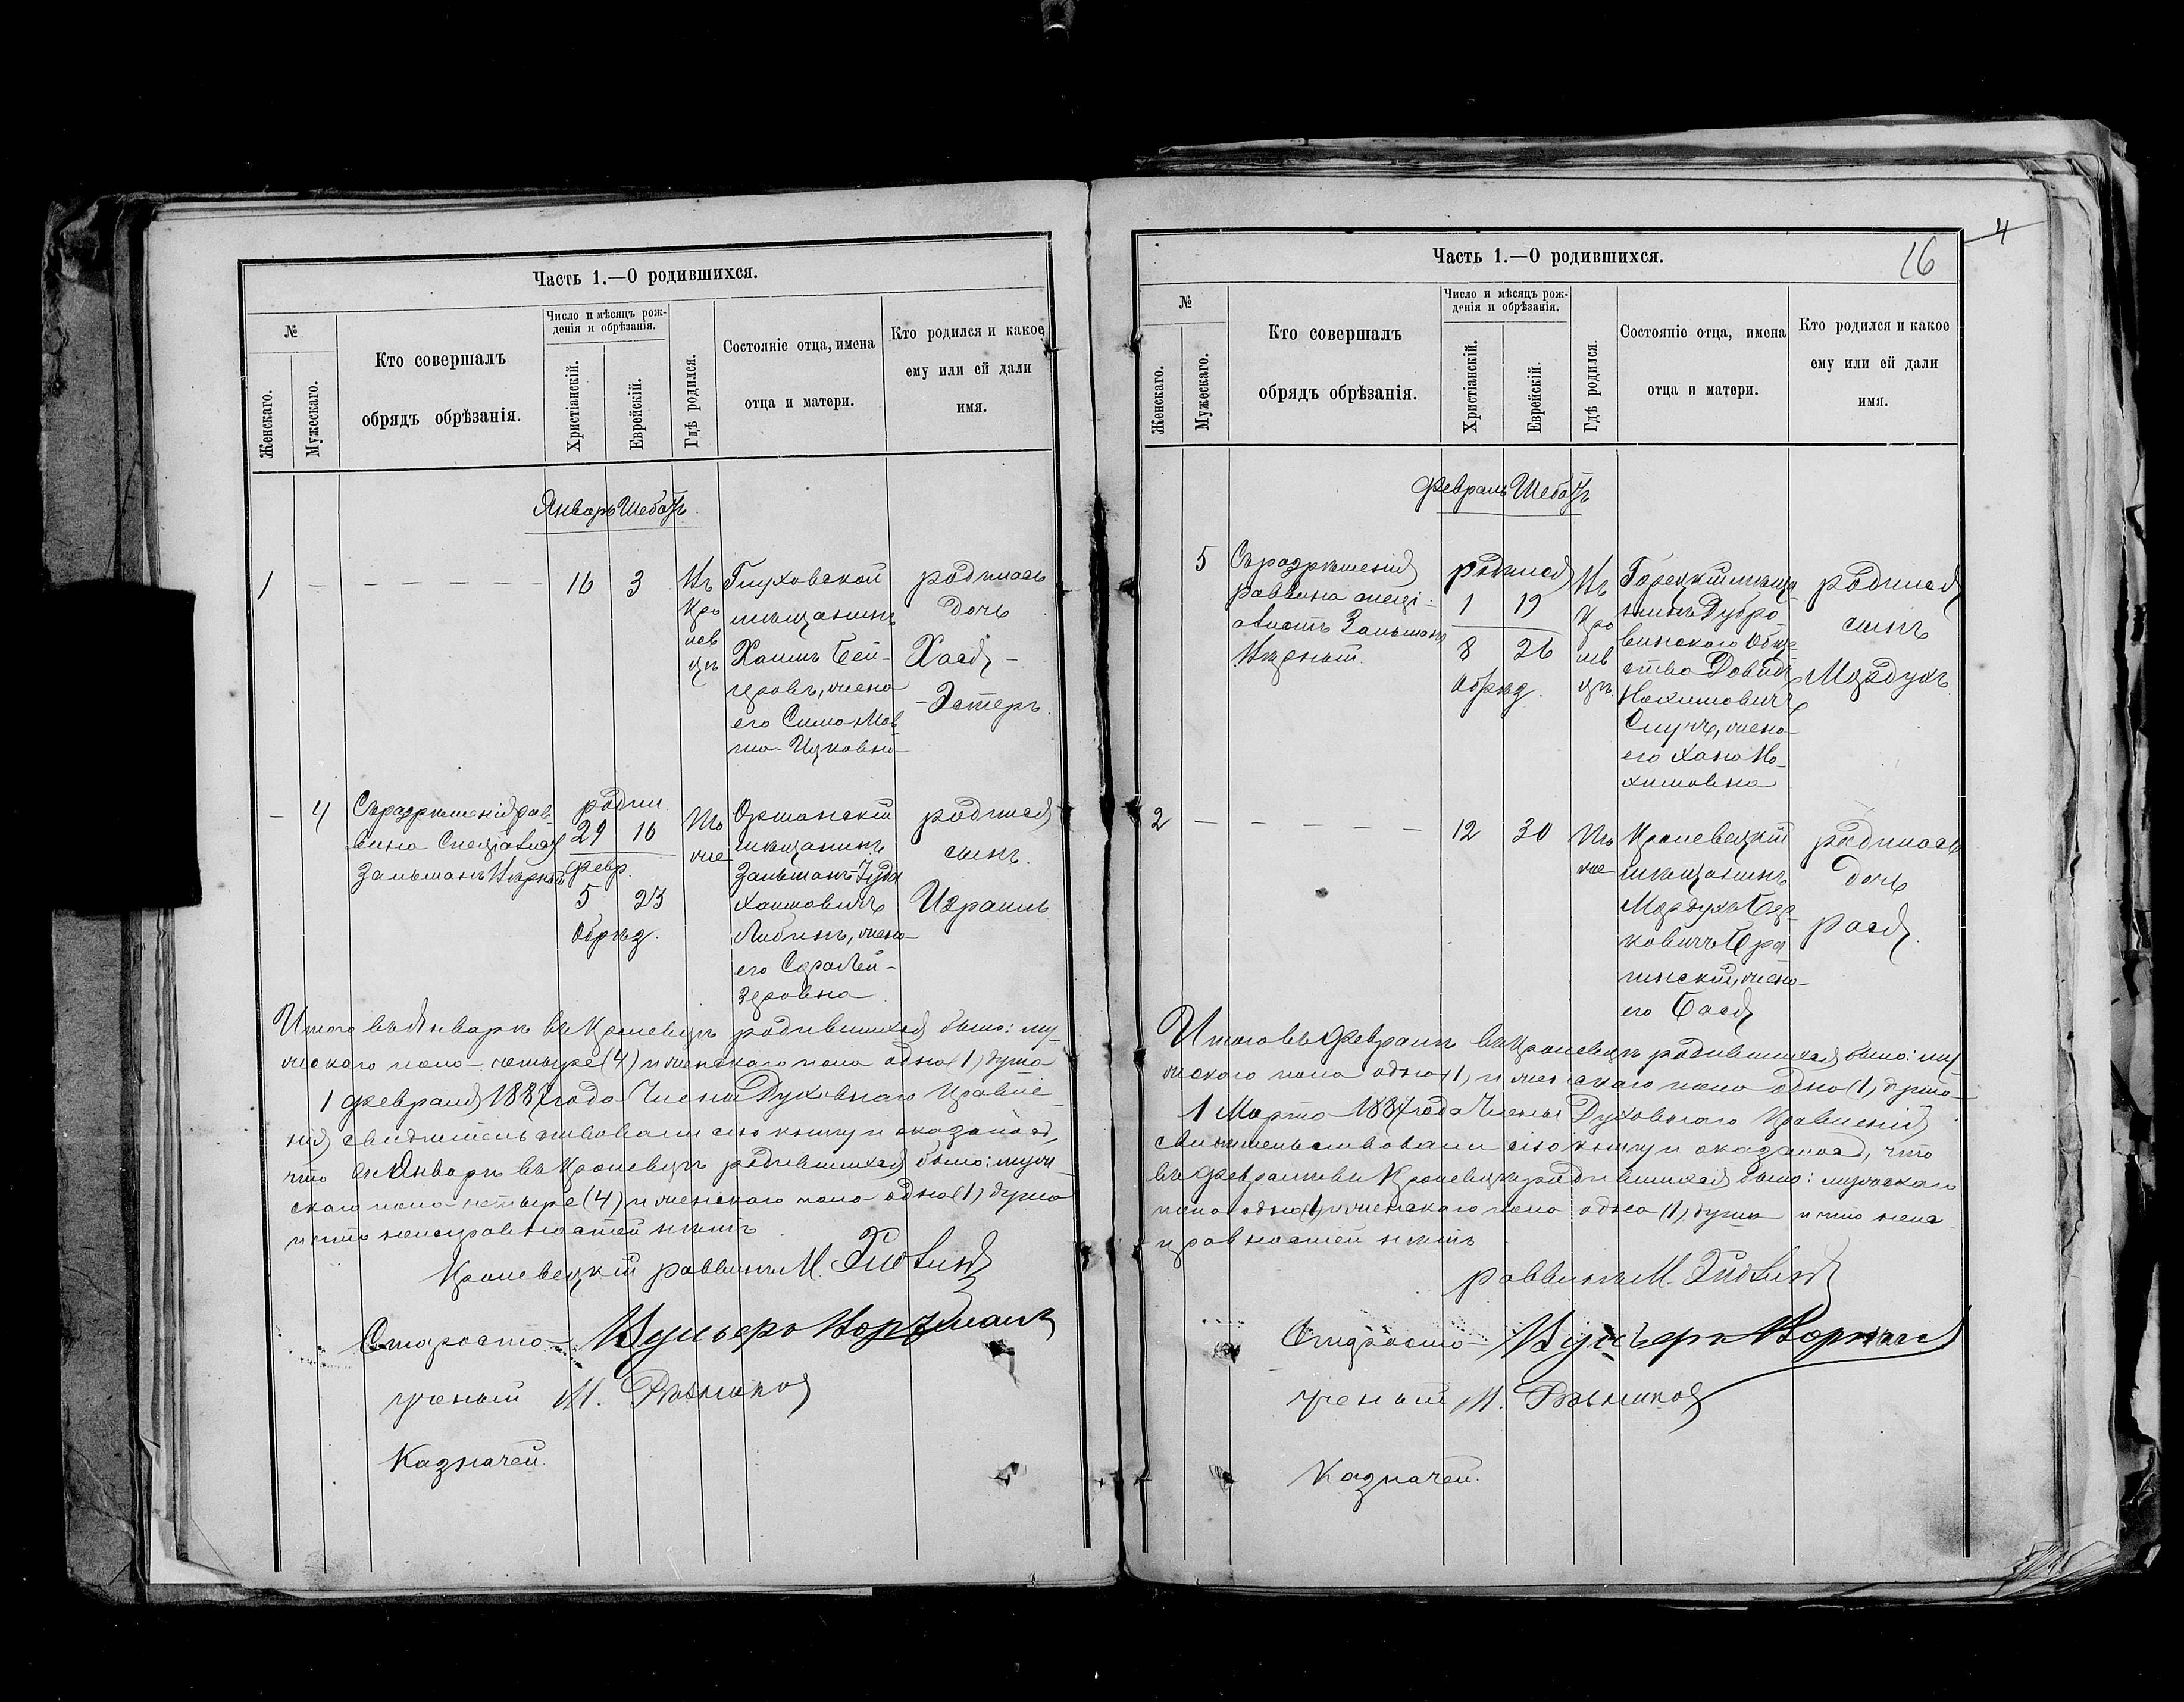 Часть 1.—О родившихся.
№
Женскаго.
Мужескаго.
Кто совершалъ
обрядъ обрѣзанія.
Число и мѣсяцъ рож-
денія и обрѣзанія.
Христіанскій.
Еврейскій.
Гдѣ родился.
Состояніе отца, имена
отца и матери.
Кто родился и какое
ему или ей дали
имя.
Январь Шебатъ.
1 — — — — — — 16 3
Въ
Кро
лев
цѣ
Глуховской
мѣщанинъ
Хаимъ Бей-
его Сима Мов
ша-Ицковна
родилась
дочь
Хася-
-Эстеръ.
— 4
Съ разрѣшенія рав-
вина спеціалистъ
Зальманъ
родил.
29 16
февр.
5 23
Обрѣз.
Тамъ
же
Оршанскій
мѣщанинъ
Зальманъ-Іуда
Хаимовичъ
Либинъ, жена
его Сора Лей-
зеровна
родился
сынъ.
Израиль
Итого въ Январѣ въ Кролевцѣ родившихся было: му-
жескаго пола четыре (4) и женскаго пола одна (1) душа
1 февраля 1887 года Члены Духовнаго Правле-
нія свидѣтельствовали сію книгу и оказалось,
что въ Январѣ въ Кролевцѣ родившихся было: муже-
скаго пола четыре (4) и женскаго пола одна (1) душа
и что неисправностей нѣтъ
Кролевецкій раввинъ М.
Староста
ученый М.
Казначей.
16
4
Часть 1.—О родившихся.
№
Женскаго.
Мужескаго.
Кто совершалъ
обрядъ обрѣзанія.
Число и мѣсяцъ рож-
денія и обрѣзанія.
Христіанскій.
Еврейскій.
Гдѣ родился.
Состояніе отца, имена
отца и матери.
Кто родился и какое
ему или ей дали
имя.
Февраль Шебатъ
5
Съ разрѣшенія
раввина спеці-
алистъ Зальманъ
родился
1 19
8 26
Обрѣз.
Въ
Кро
лев
цѣ.
Горецкій мѣща-
нинъ Дубро
винскаго Обще
ства Довидъ
Нохимовичъ
жена
его Хана Но-
химовна
родился
сынъ
Мордухъ
2 — — — — — 12 30
Тамъ
же
Кролевецкій
мѣщанинъ
Мордухъ Бер-
ковичъ
жена
его Бася
родилась
дочь
Рася.
Итого въ Февралѣ въ Кролевцѣ родившихся было: му-
жескаго пола одна (1) и женскаго пола одна (1) душа
1 Марта 1887 года Члены Духовнаго Правленія
свидѣтельствовали сію книгу и оказалось, что
въ Февралѣ въ Кролевцѣ родившихся было: мужескаго
пола одна (1) и женскаго пола одна (1) душа и что неис
правностей нѣтъ
раввинъ М.
Староста
ученый М.
Казначей.